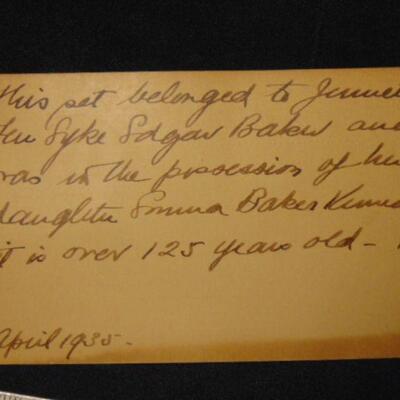 This set belonged to
Edgar Baker and
was in the possession of her
daughter Emma Baker
it is over 125 years old -
April 1935.